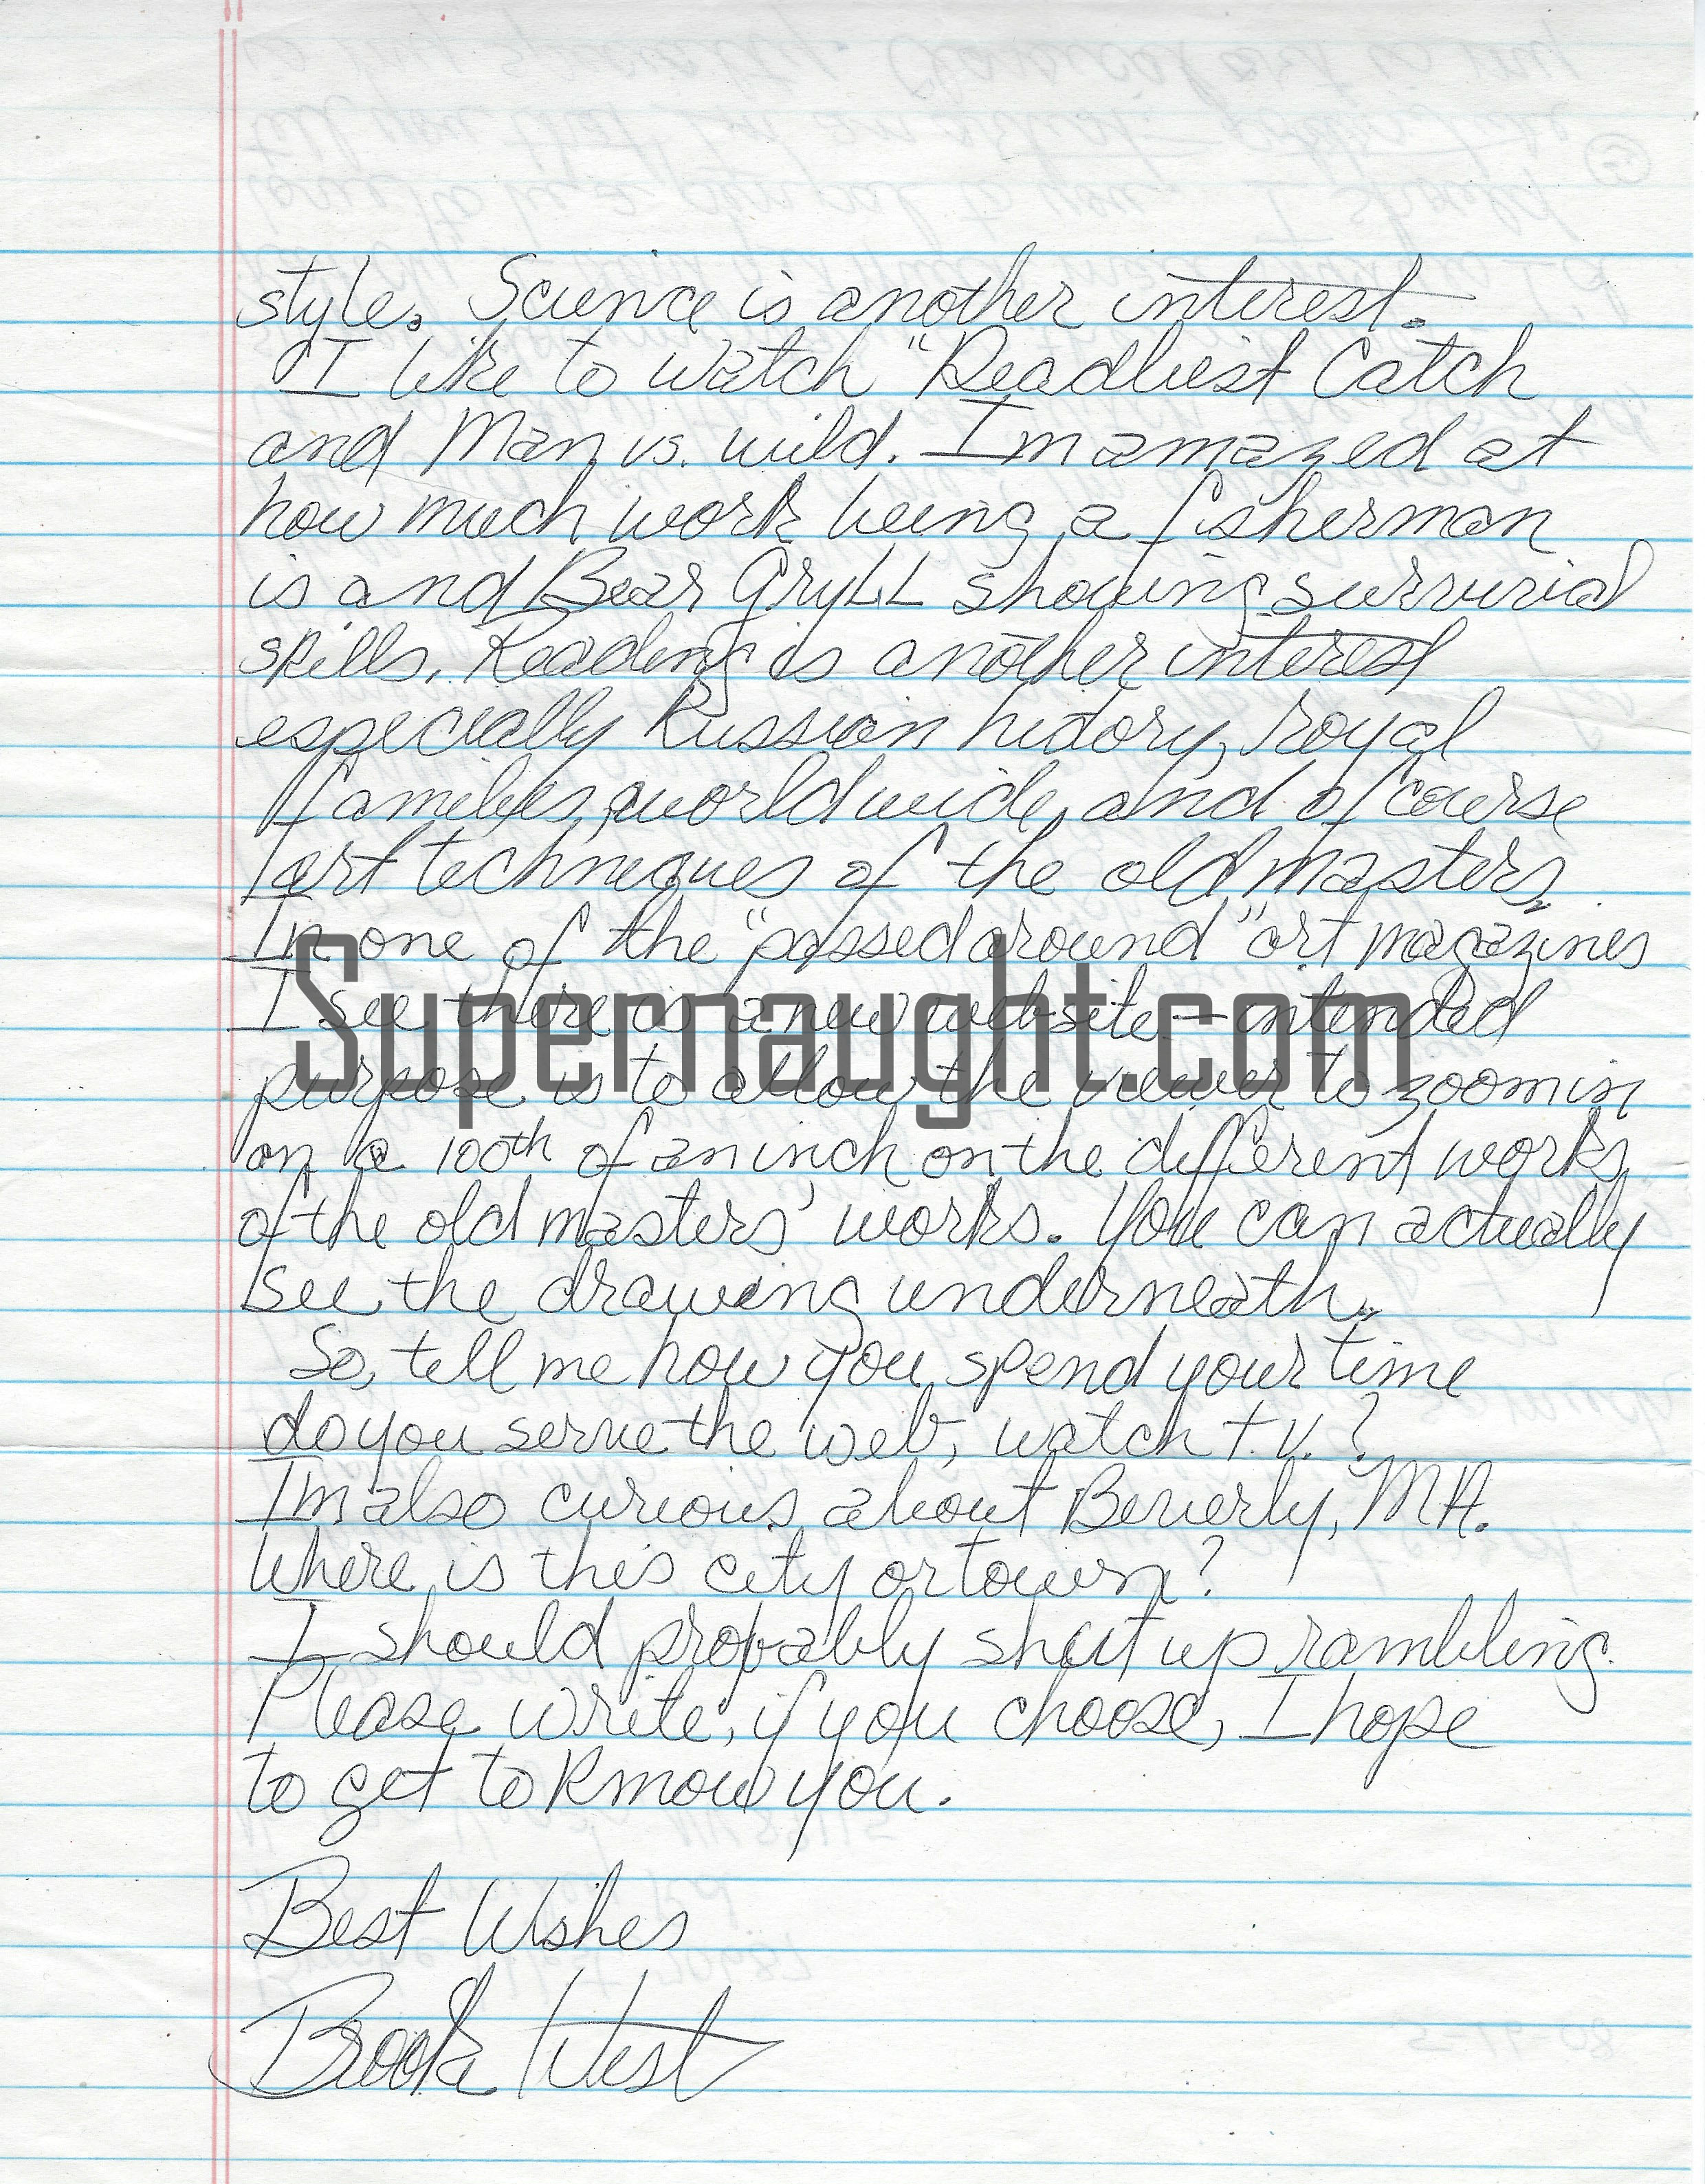 style. Science is another interest.
I like to watch "Deadliest Catch
and Man vs. wild. Im amazed at
how much work being a fisherman
is and Bear GryLL showing survuial
skills. Reading is another interest
especially Russian history, royal
families, worldwide, and of course
art techniques of the old masters.
In one of the "passed around" art magazines
I see there is a new website - intended
Supernaught.com
purpose is to allow the viewer to zoom in
on a 100th of an inch on the different works
of the old masters' works. You can actually
see the drawing underneath.
So, tell me how you spend your time
do you serve the web, watch t.v.?
Im also curious about Beverly, MA.
Where is this city or town?
I should probably shut up rambling.
Please write, if you choose, I hope
to get to know you.
Best Wishes
Brook West